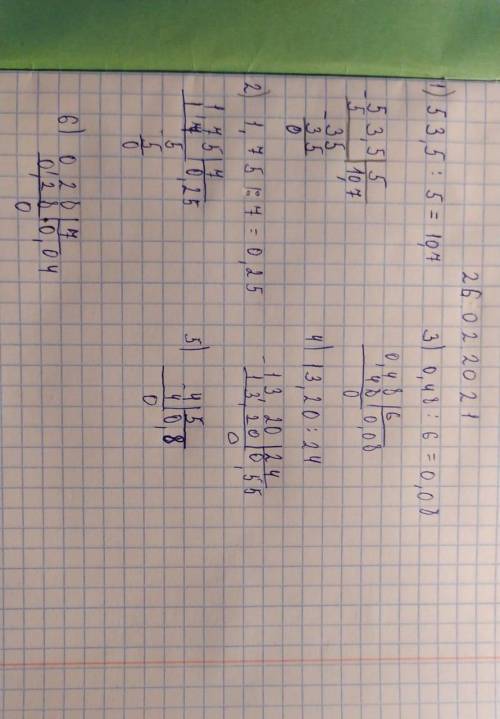 26.02 2021
1) 53,5 : 5 = 10,7
-53,5 | 5
5 | 10,7
-35
35
0
2) 1,75 : 7 = 0,25
1,75 | 7
14 | 0,25
-5
5
0
3) 0,48 : 6 = 0,08
0,48 | 6
48 | 0,08
0
4) 13,20 : 24
-13,20 | 24
13,20 | 0,55
0
5) -4 | 5
4 | 0,8
0
6) 0,28 | 7
0,28 | 0,04
0